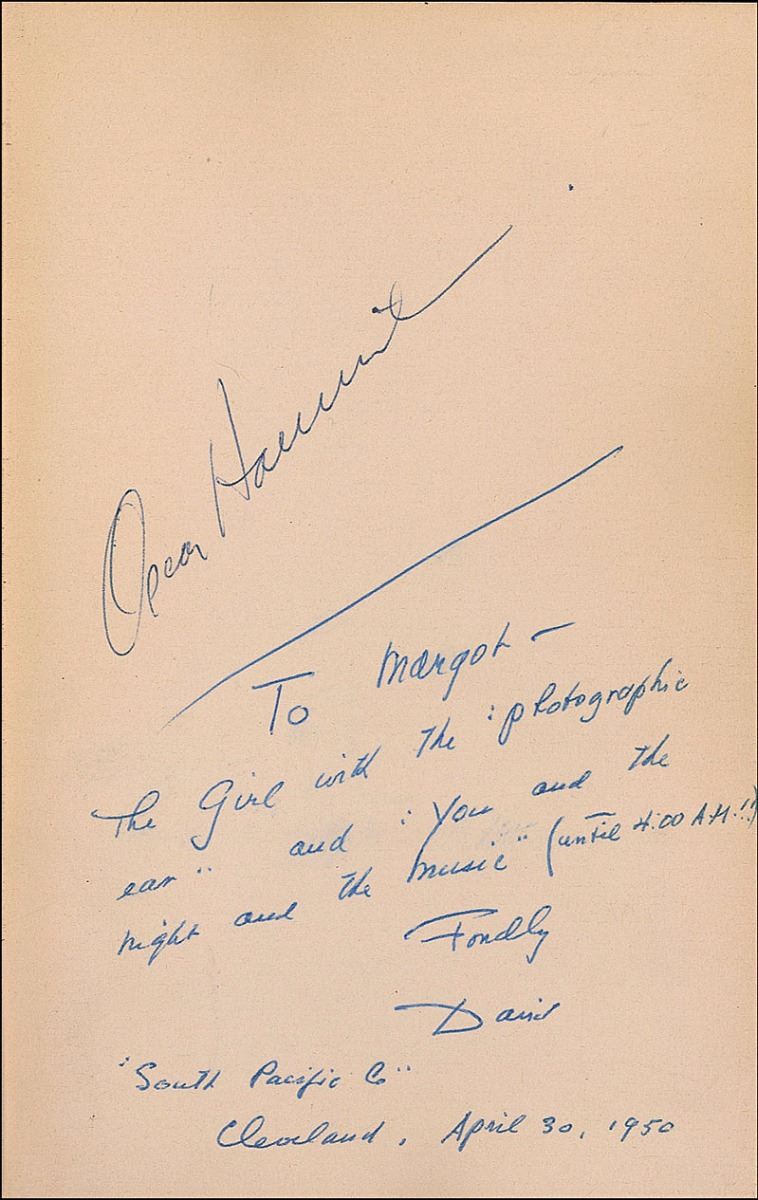 Oscar Hammerstein
To Margot —
The Girl with the "photographic
ear" and "You and the
night and the music" (until 4:00 A.M.!!)
Fondly
David
"South Pacific Co"
Cleveland, April 30, 1950